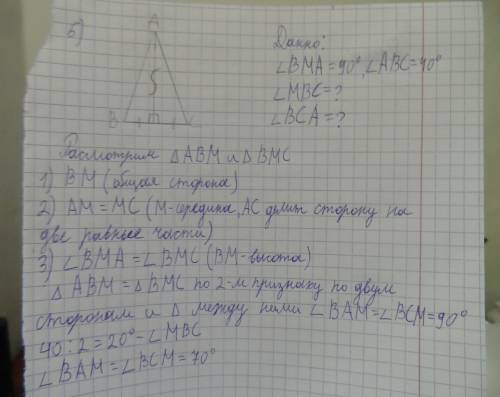 5)
A
5
B
m
Данно:
∠BMA=90°, ∠ABC=40°
∠MBC=?
∠BCA=?
Расмотрим △ABM и △BMC
1) BM (общая сторона)
2) AM=MC (M-середина, AC делит сторону на
две равные части)
3) ∠BMA=∠BMC (BM-высота)
△ABM=△BMC по 2-м признаку по двум
сторонам и △ между ними ∠BAM=∠BCM=90°
40:2=20°-∠MBC
∠BAM=∠BCM=70°